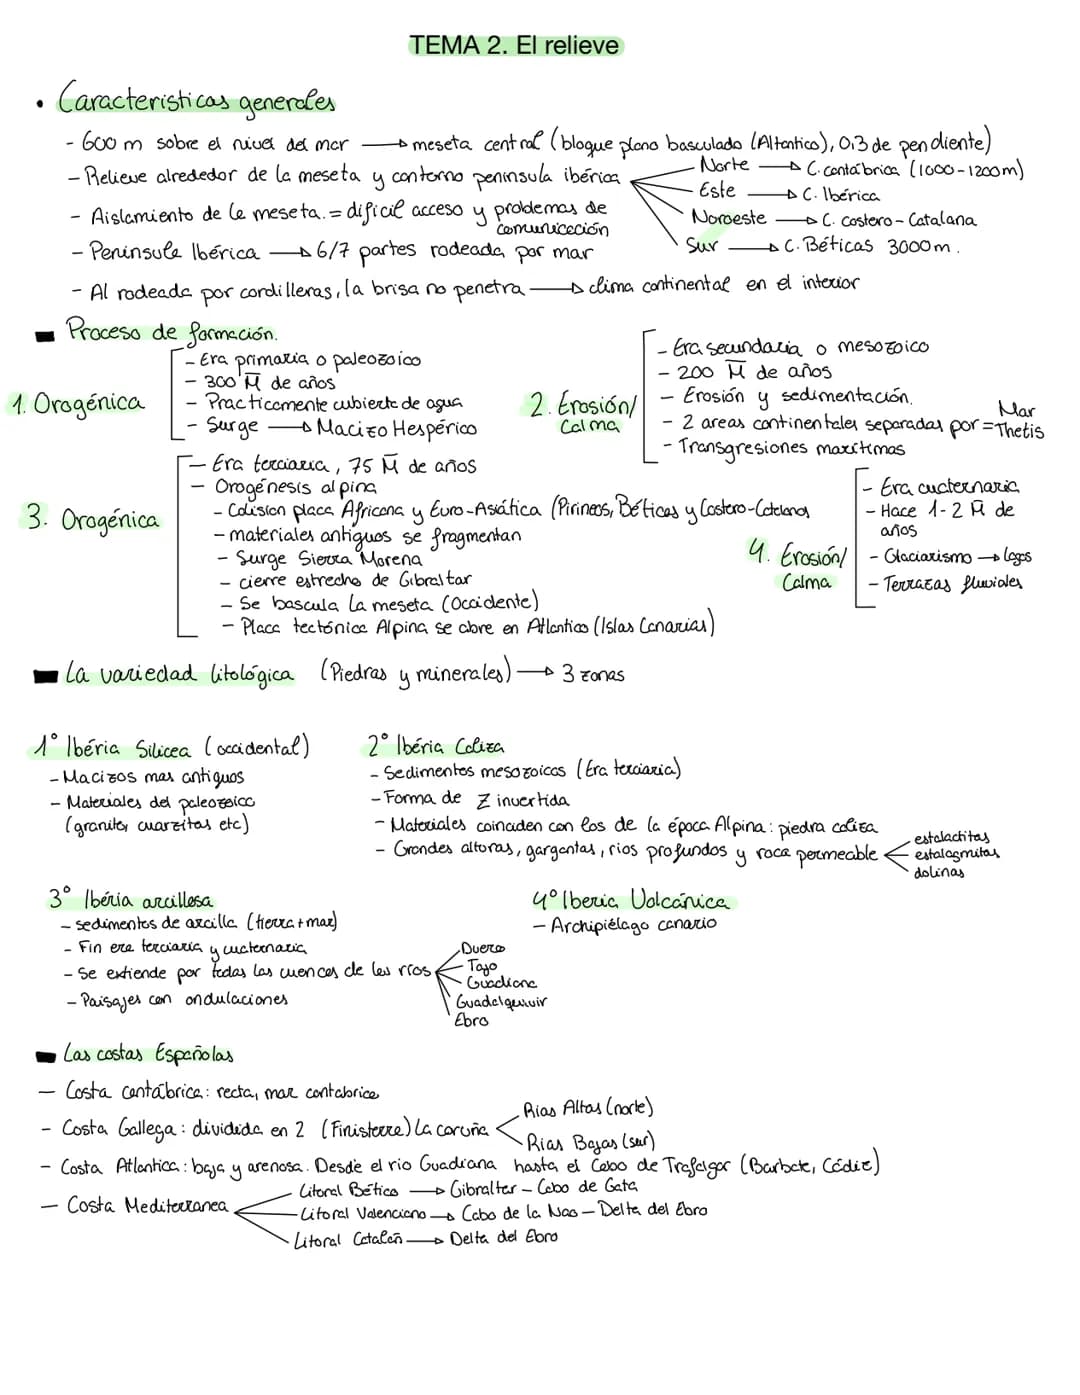 TEMA 2. El relieve
• Caracteristicas generales
- 600 m sobre el nivel del mar → meseta central (bloque plano basculado (Altantico), 0,3 de pendiente)
- Relieve alrededor de la meseta y contorno peninsula ibérica
Norte → C. cantábrica (1000-1200m)
Este → C. Ibérica
Noroeste → C. costero-Catalana
Sur → C. Béticas 3000m.
- Aislamiento de la meseta. = dificil acceso y problemas de comunicación
- Peninsula Ibérica → 6/7 partes rodeada por mar
- Al rodeada por cordilleras, la brisa no penetra → clima continental en el interior
Proceso de formación.
1. Orogénica
- Era primaria o paleozoico
- 300 M de años
- Practicamente cubierta de agua
- Surge → Macizo Hespérico
2. Erosión/ Calma
- Era secundaria o mesozoico
- 200 M de años
- Erosión y sedimentación.
- 2 areas continentales separadas por = Mar Thetis
- Transgresiones marítimas
3. Orogénica
- Era terciaria, 75 M de años
- Orogénesis alpina
- Colision placa Africana y Euro-Asiática (Pirineos, Béticas y Costero-Catalanas
- materiales antiguos se fragmentan
- Surge Sierra Morena
- cierre estrecho de Gibraltar
- Se bascula la meseta (Occidente)
- Placa tectónica Alpina se abre en Atlantico (Islas Canarias)
4. Erosión/ Calma
- Era cuaternaria
- Hace 1-2 M de años
- Glaciarismo → lagos
- Terrazas fluviales
La variedad litológica (Piedras y minerales) → 3 zonas
1º Ibéria Silicea (occidental)
- Macizos mas antiguos
- Materiales del paleozoico
(granitos cuarzitas etc)
2º Ibéria Caliza
- Sedimentos mesozoicos (Era terciaria)
- Forma de Z invertida
- Materiales coinciden con los de la época Alpina: piedra caliza
- Grandes alturas, gargantas, rios profundos y roca permeable
estalactitas
estalagmitas
dolinas
3º Ibéria arcillosa
- sedimentos de arcilla (tierra+mar)
- Fin era terciaria y cuaternaria
- Se extiende por todas las cuencas de los rios
Duero
Tajo
Guadiana
Guadalquivir
Ebro
- Paisajes con ondulaciones
4º Iberia Volcánica
- Archipiélago canario
Las costas Españolas
- Costa cantábrica: recta, mar cantabrico
- Costa Gallega: dividida en 2 (Finisterre) La coruña
Rias Altas (norte)
Rias Bajas (sur)
- Costa Atlantica: baja y arenosa. Desde el rio Guadiana hasta el Cabo de Trafalgar (Barbate, Cádiz)
- Costa Mediterranea
Litoral Bético → Gibraltar - Cabo de Gata
- Litoral Valenciano → Cabo de la Nao - Delta del Ebro
Litoral Catalañ → Delta del Ebro